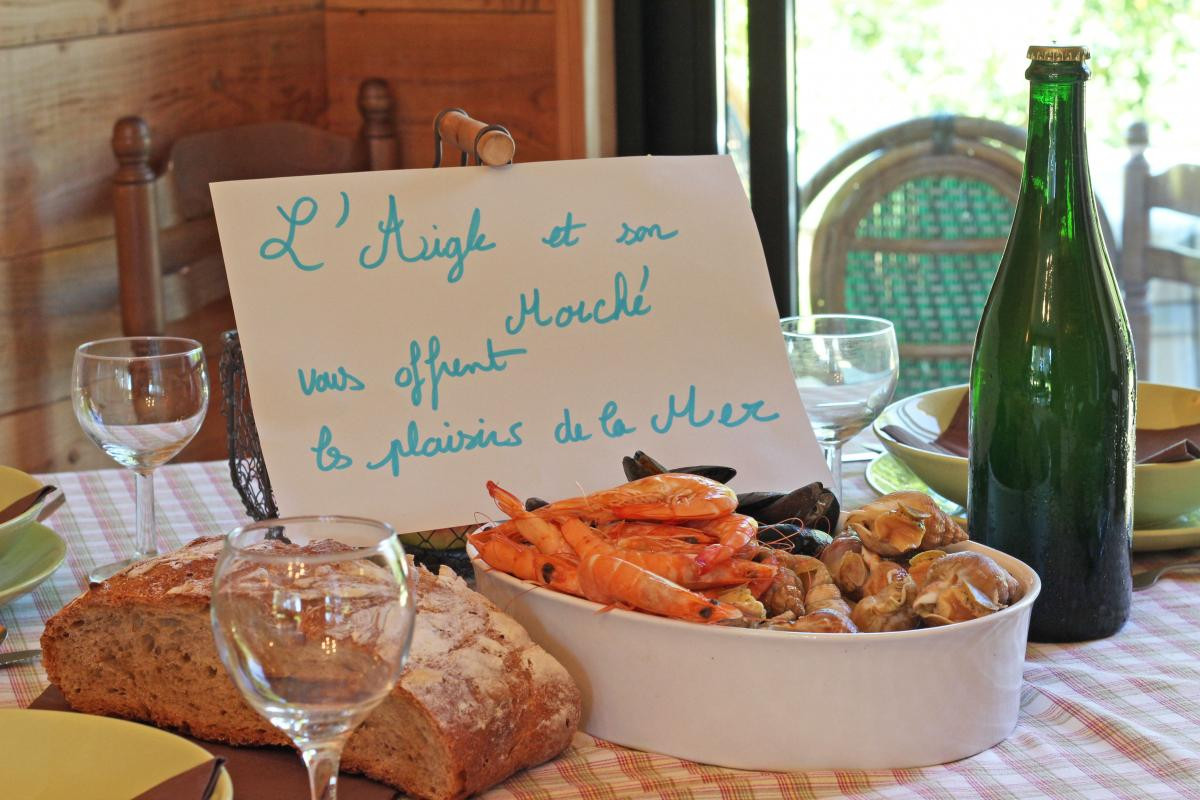 L'Aigle et son
Marché
vous offrent
les plaisirs de la Mer